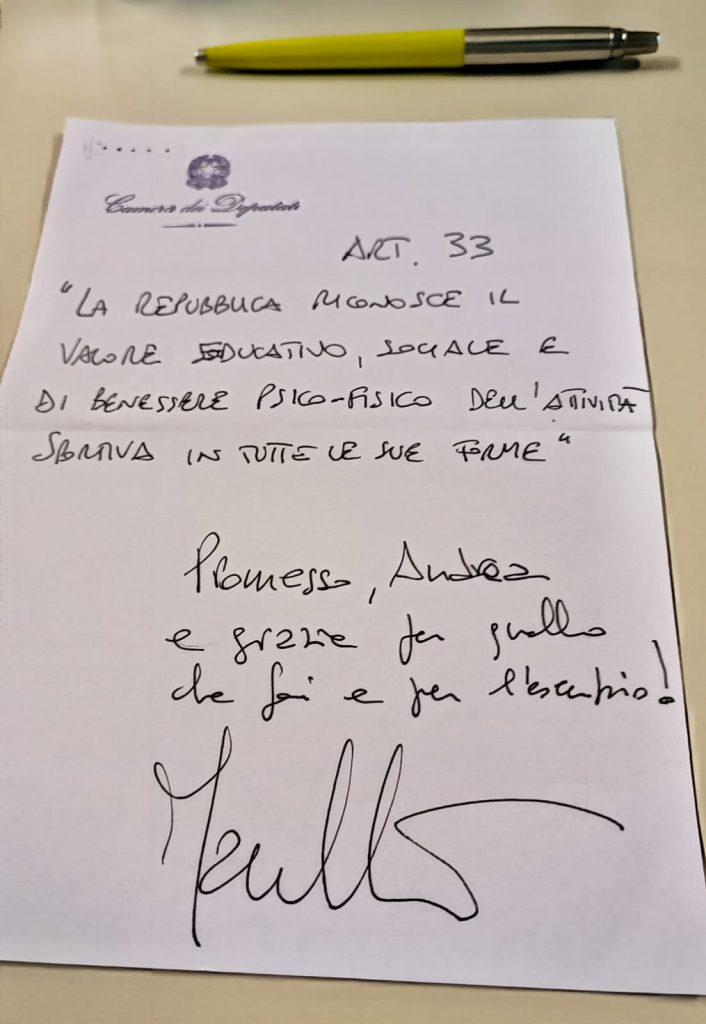 Camera dei Deputati
ART. 33
"LA REPUBBLICA RICONOSCE IL
VALORE EDUCATIVO, SOCIALE E
DI BENESSERE PSICO-FISICO DELL'ATTIVITÀ
SPORTIVA IN TUTTE LE SUE FORME"
Promesso, Andrea
e grazie per quello
che fai e per l'esempio!